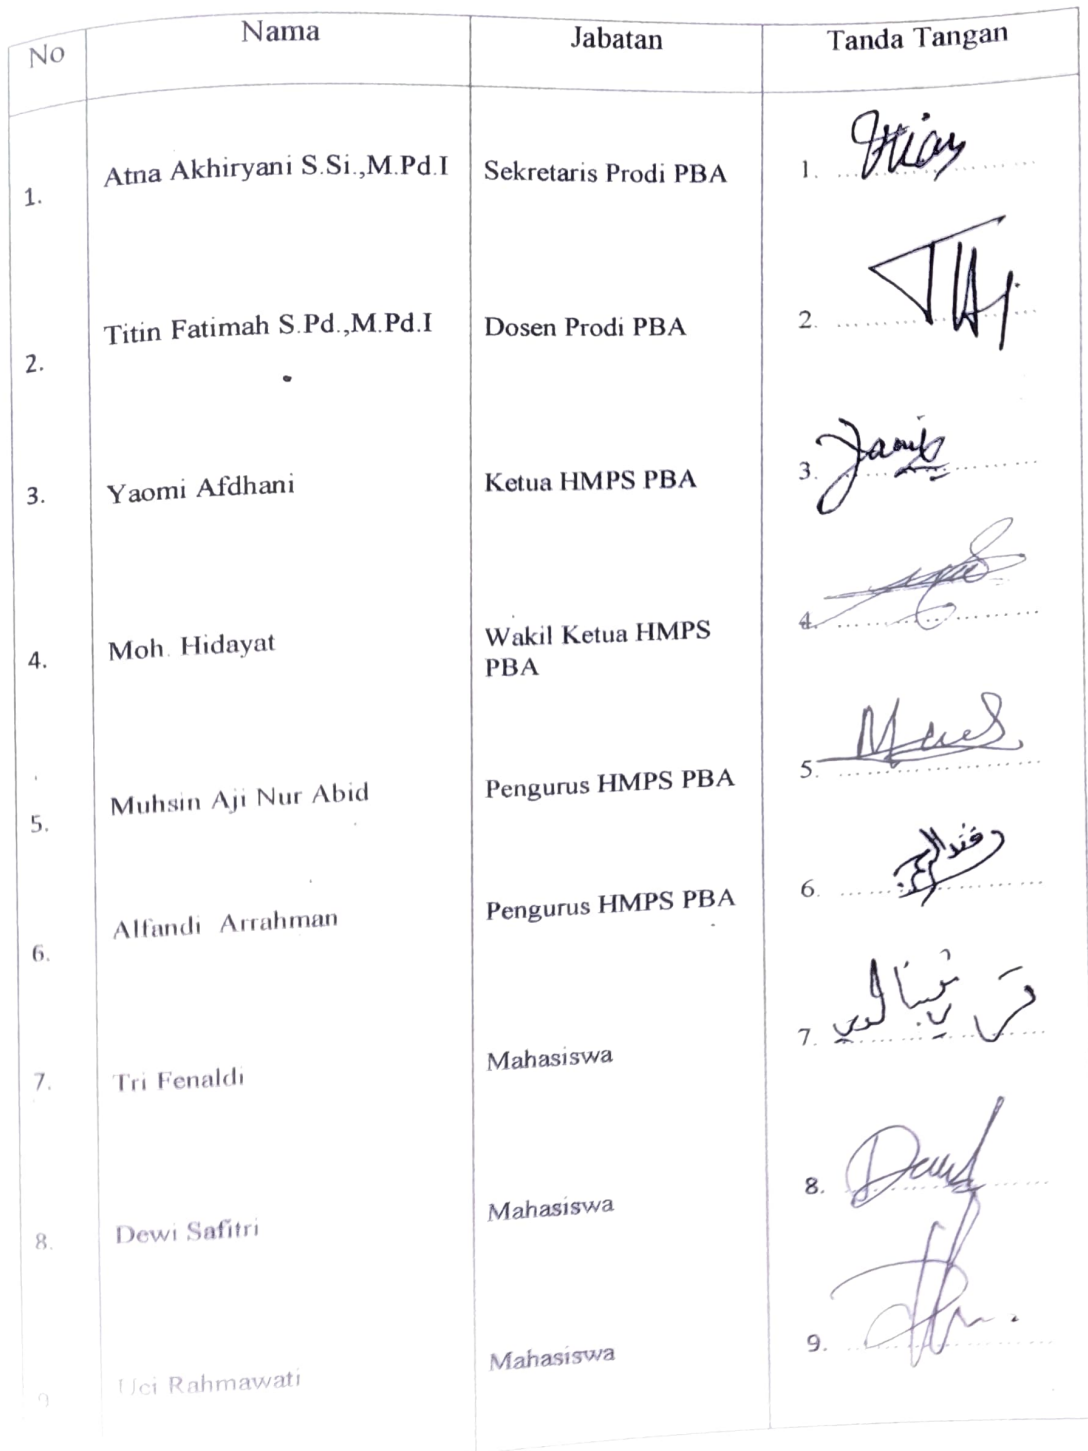 No Nama Jabatan Tanda Tangan
1. Atna Akhiryani S.Si.,M.Pd.I Sekretaris Prodi PBA 1. ..................
2. Titin Fatimah S.Pd.,M.Pd.I Dosen Prodi PBA 2. ..................
3. Yaomi Afdhani Ketua HMPS PBA 3. ..................
4. Moh. Hidayat Wakil Ketua HMPS 4. ..................
PBA
5. Muhsin Aji Nur Abid Pengurus HMPS PBA 5. ..................
6. Alfandi Arrahman Pengurus HMPS PBA 6. ..................
7. Tri Fenaldi Mahasiswa 7. ..................
8. Dewi Safitri Mahasiswa 8. ..................
9 Uci Rahmawati Mahasiswa 9. ..................